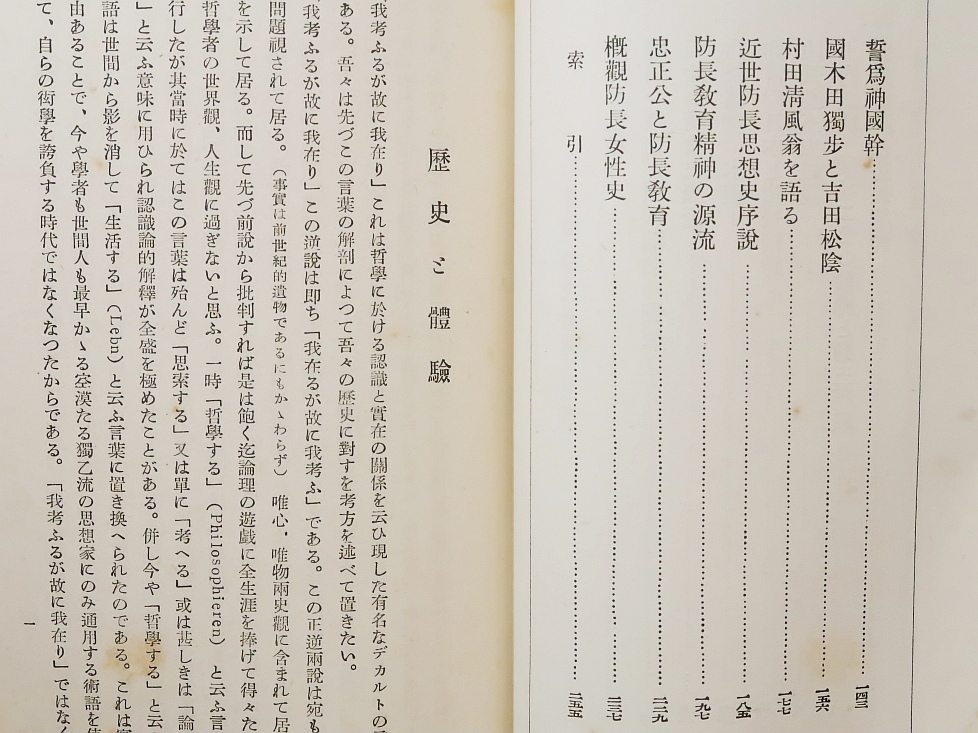 誓爲神國幹……一四三
國木田獨步と吉田松陰……一五六
村田淸風翁を語る……一七七
近世防長思想史序說……一八五
防長教育精神の源流……一九七
忠正公と防長教育……二一九
槪觀防長女性史……二三七
索引……二五五
歷史と體驗
我考ふるが故に我在り」これは哲學に於ける認識と實在の關係を云ひ現した有名なデカルトの
ある。吾々は先づこの言葉の解剖によつて吾々の歷史に對すを考方を述べて置きたい。
我考ふるが故に我在り」この逆說は卽ち「我在るが故に我考ふ」である。この正逆兩說は宛も
問題視されて居る。（事實は前世紀的遺物であるにもかゝわらず）唯心，唯物兩史觀に含まれて居
を示して居る。而して先づ前說から批判すれば是は飽く迄論理の遊戲に全生涯を捧げて得々た
哲學者の世界觀、人生觀に過ぎないと思ふ。一時「哲學する」（Philosophieren）と云ふ言
行したが其當時に於てはこの言葉は殆んど「思索する」又は單に「考へる」或は甚しきは「論
」と云ふ意味に用ひられ認識論的解釋が全盛を極めたことがある。併し今や「哲學する」と云
語は世間から影を消して「生活する」（Lebn）と云ふ言葉に置き換へられたのである。これは
由あることで、今や學者も世間人も最早かゝる空漠たる獨乙流の思想家にのみ通用する術語を
て、自らの衒學を誇負する時代ではなくなつたからである。「我考ふるが故に我在り」ではなく
一